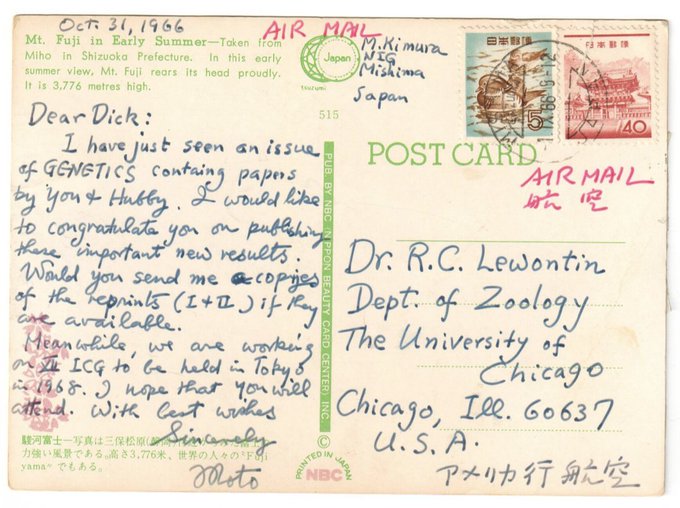 Oct. 31, 1966
AIR MAIL
Mt. Fuji in Early Summer—Taken from
Miho in Shizuoka Prefecture. In this early
summer view, Mt. Fuji rears its head proudly.
It is 3,776 metres high.
Japan
tsuzumi
M. Kimura
NIG
Mishima
Japan
515
日本郵便
5
日本郵便
40
POST CARD
AIR MAIL
航空
Dear Dick:
I have just seen an issue
of GENETICS containg papers
by you & Hubby. I would like
to congratulate you on publishing
these important new results.
Would you send me copies
of the reprints (I + II) if they
are available.
Meanwhile, we are working
on XII ICG to be held in Tokyo
in 1968. I hope that you will
attend. With best wishes
Sincerely
Moto
PUB. BY NBC (NIPPON BEAUTY CARD CENTER) INC.
Dr. R.C. Lewontin
Dept. of Zoology
The University of
Chicago
Chicago, Ill. 60637
U.S.A.
アメリカ行 航空
駿河富士—写真は三保松原
力強い風景である。高さ3,776米、世界の人々の"Fuji
yama"でもある。
©
PRINTED IN JAPAN
NBC